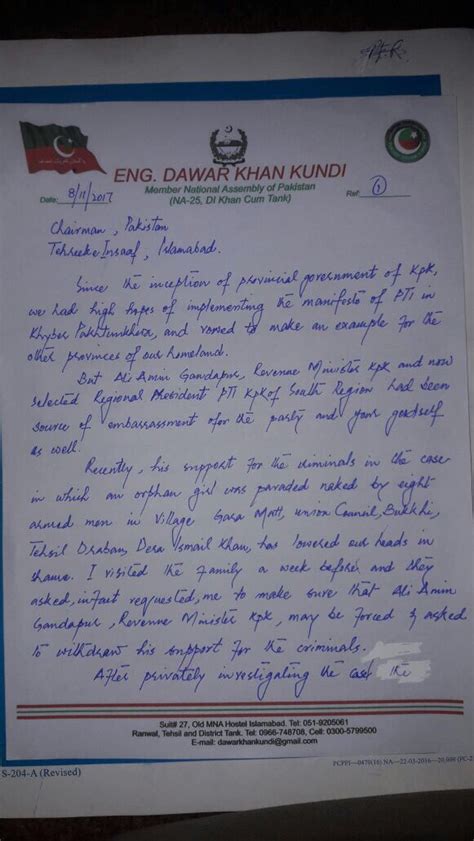 P.F.R
ENG. DAWAR KHAN KUNDI
Member National Assembly of Pakistan
(NA-25, DI Khan Cum Tank)
Date: 8/11/2017
Ref: 1
Chairman, Pakistan
Tehreeke Insaaf, Islamabad.
Since the inception of provincial government of KPK,
we had high hopes of implementing the manifesto of PTI in
Khyber Pakhtunkhwa, and vowed to make an example for the
other provinces of our homeland.
But Ali Amin Gandapur, Revenue Minister KPK and now
selected Regional President PTI KPK of South Region had been
source of embarassment for the party and your goodself
as well.
Recently, his support for the criminals in the case
in which an orphan girl was paraded naked by eight
armed men in Village Gara Matt, Union Council, Bukkhi,
Tehsil Draban, Dera Ismail Khan, has lowered our heads in
shame. I visited the family a week before and they
asked, infact requested, me to make sure that Ali Amin
Gandapur, Revenue Minister KPK, may be forced & asked
to withdraw his support for the criminals.
After privately investigating the case the
Suit# 27, Old MNA Hostel Islamabad. Tel: 051-9205061
Ranwal, Tehsil and District Tank. Tel: 0966-748708, Cell: 0300-5799500
E-mail: dawarkhankundi@gmail.com
S-204-A (Revised)
PCPPI—0470(16) NA—22-03-2016—20,000 (PC-2